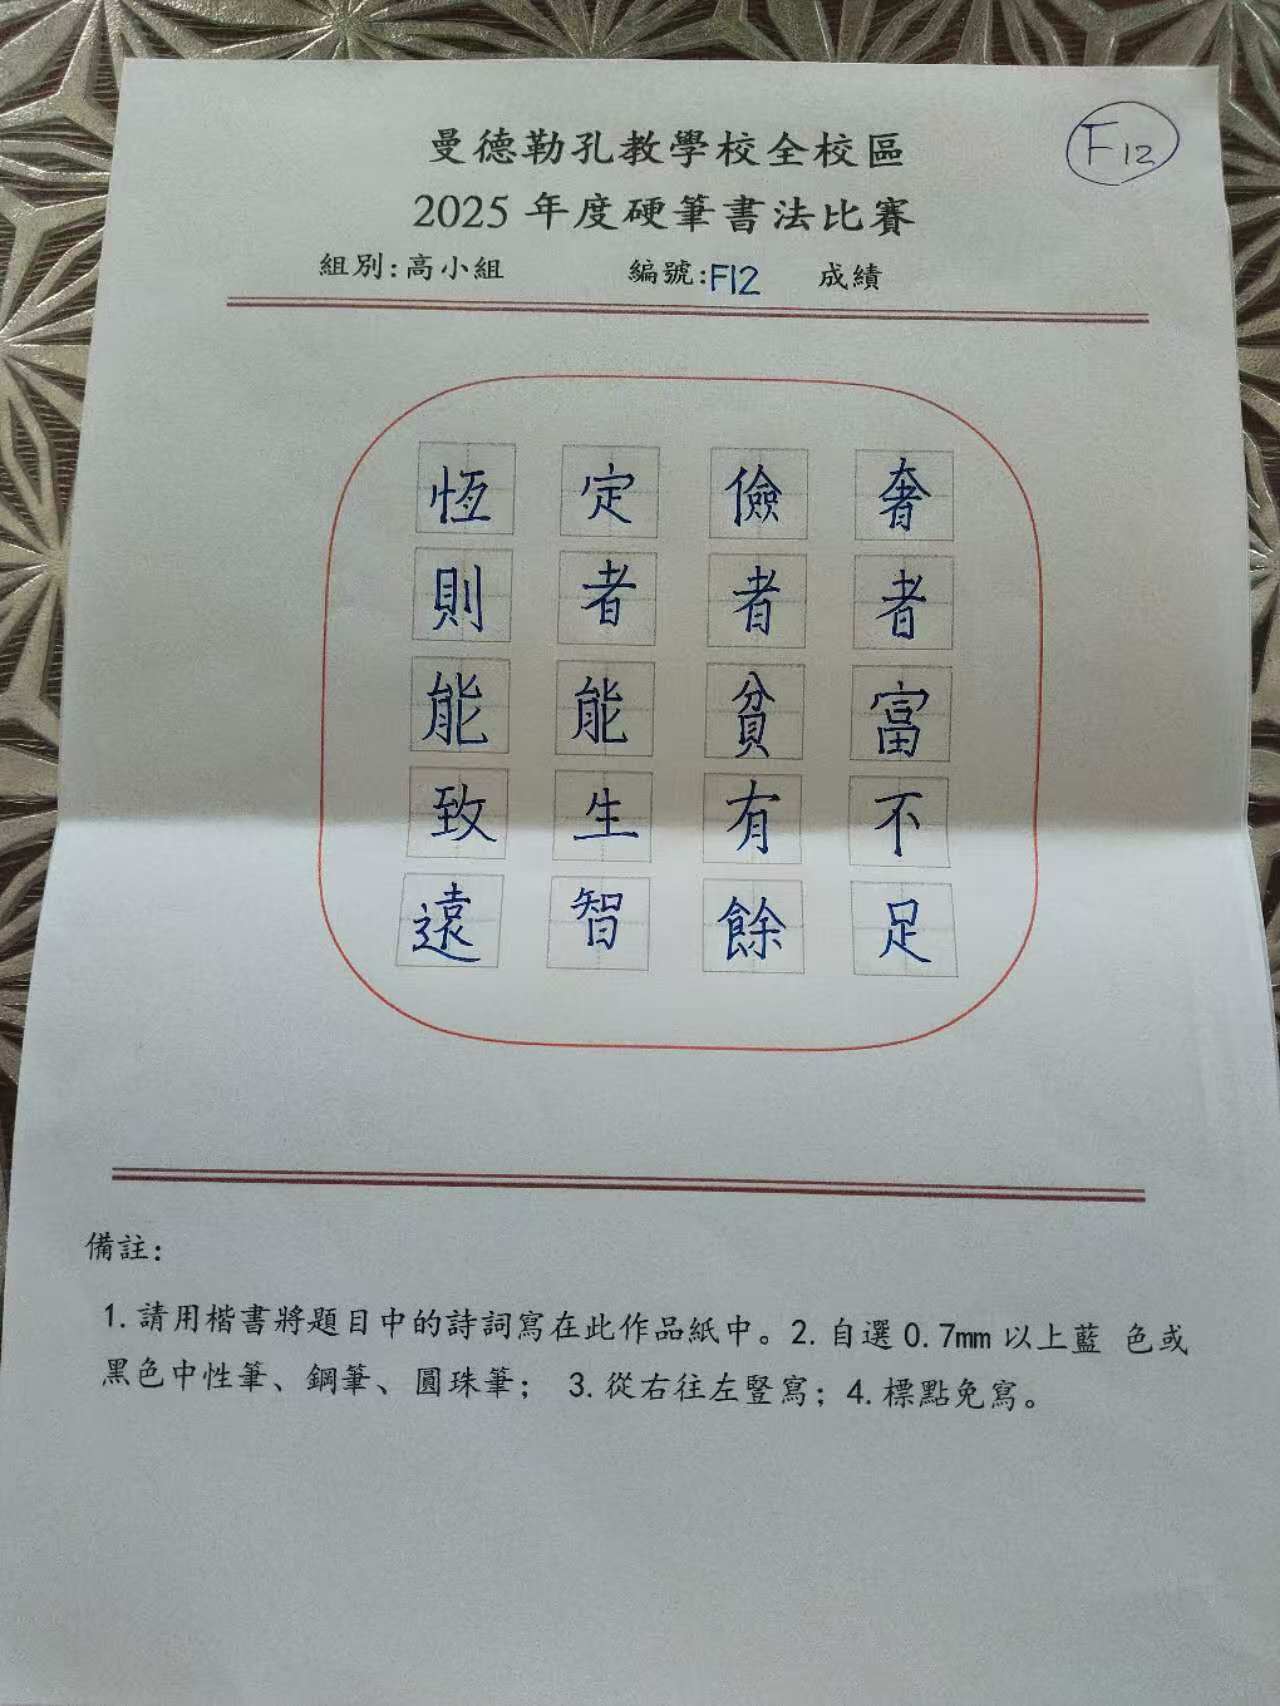 F12
曼德勒孔教學校全校區
2025 年度硬筆書法比賽
組別:高小組 編號:F12 成績
奢者富不足
儉者貧有餘
定者能生智
恆則能致遠
備註:
1.請用楷書將題目中的詩詞寫在此作品紙中。2.自選0.7mm以上藍 色或
黑色中性筆、鋼筆、圓珠筆; 3.從右往左豎寫;4.標點免寫。